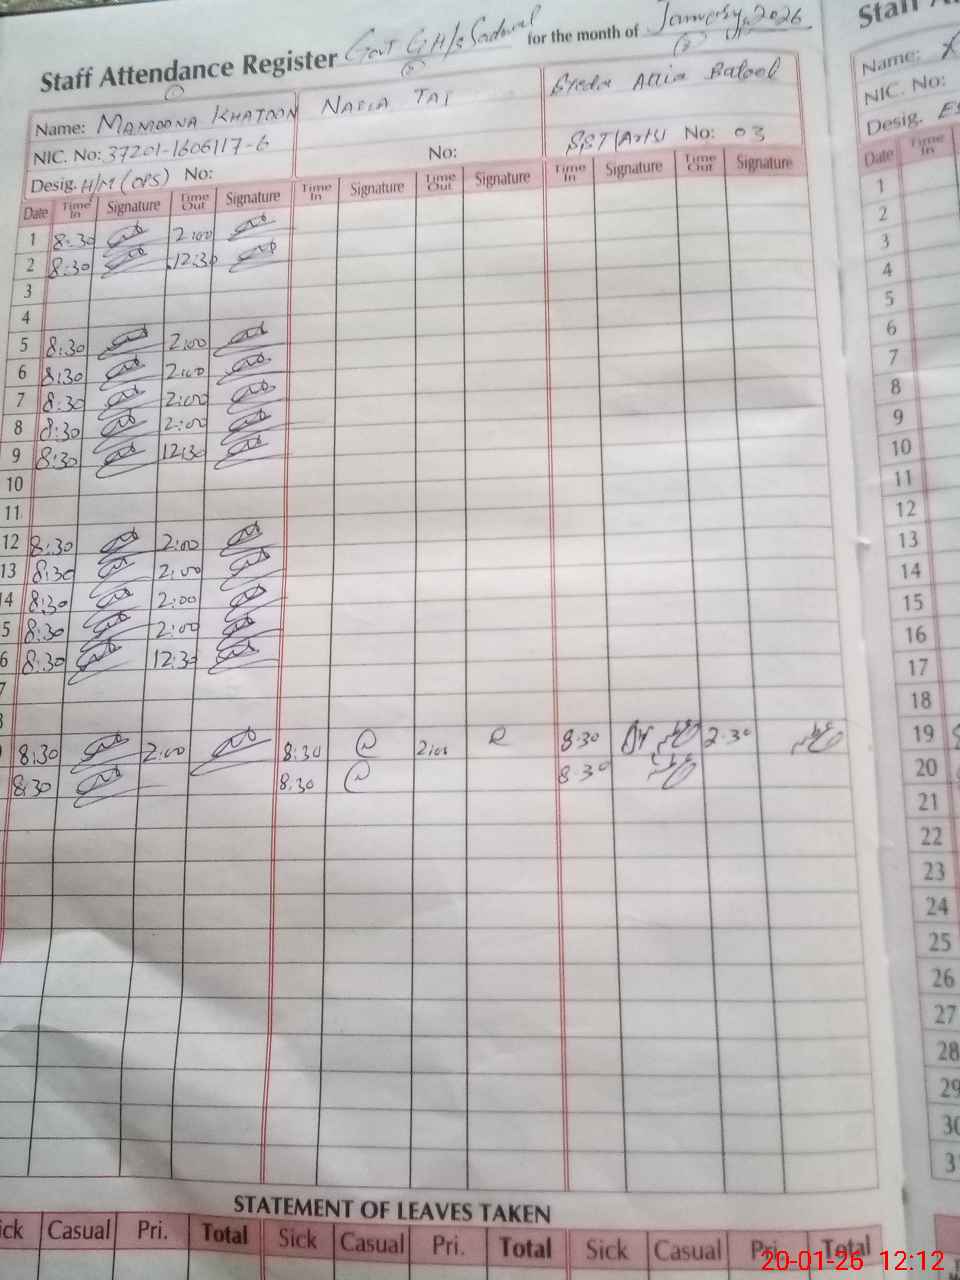 Staff Attendance Register Govt G H/S Sadwal for the month of January, 2026
Staff
Name: MAMOONA KHATOON NAZIA TAJ Syeda Allia Batool
NIC. No: 37201-1606117-6 No: SST (Arts) No: 03
Desig. H/M (OPS) No:
Name:
NIC. No:
Desig.
Date Time In Signature Time Out Signature Time In Signature Time Out Signature Time In Signature Time Out Signature
Date Time In
1 8:30 2:00 1
2 8:30 12:30 2
3 3
4 4
5 8:30 2:00 5
6 8:30 2:00 6
7 8:30 2:00 7
8 8:30 2:00 8
9 8:30 12:30 9
10 10
11 11
12 8:30 2:00 12
13 8:30 2:00 13
14 8:30 2:00 14
5 8:30 2:00 15
6 8:30 12:30 16
7 17
18
8:30 2:00 8:30 2:00 8:30 2:30 19
8:30 8:30 8:30 20
21
22
23
24
25
26
27
28
29
30
3
STATEMENT OF LEAVES TAKEN
Sick Casual Pri. Total Sick Casual Pri. Total Sick Casual Pri. Total
20-01-26 12:12